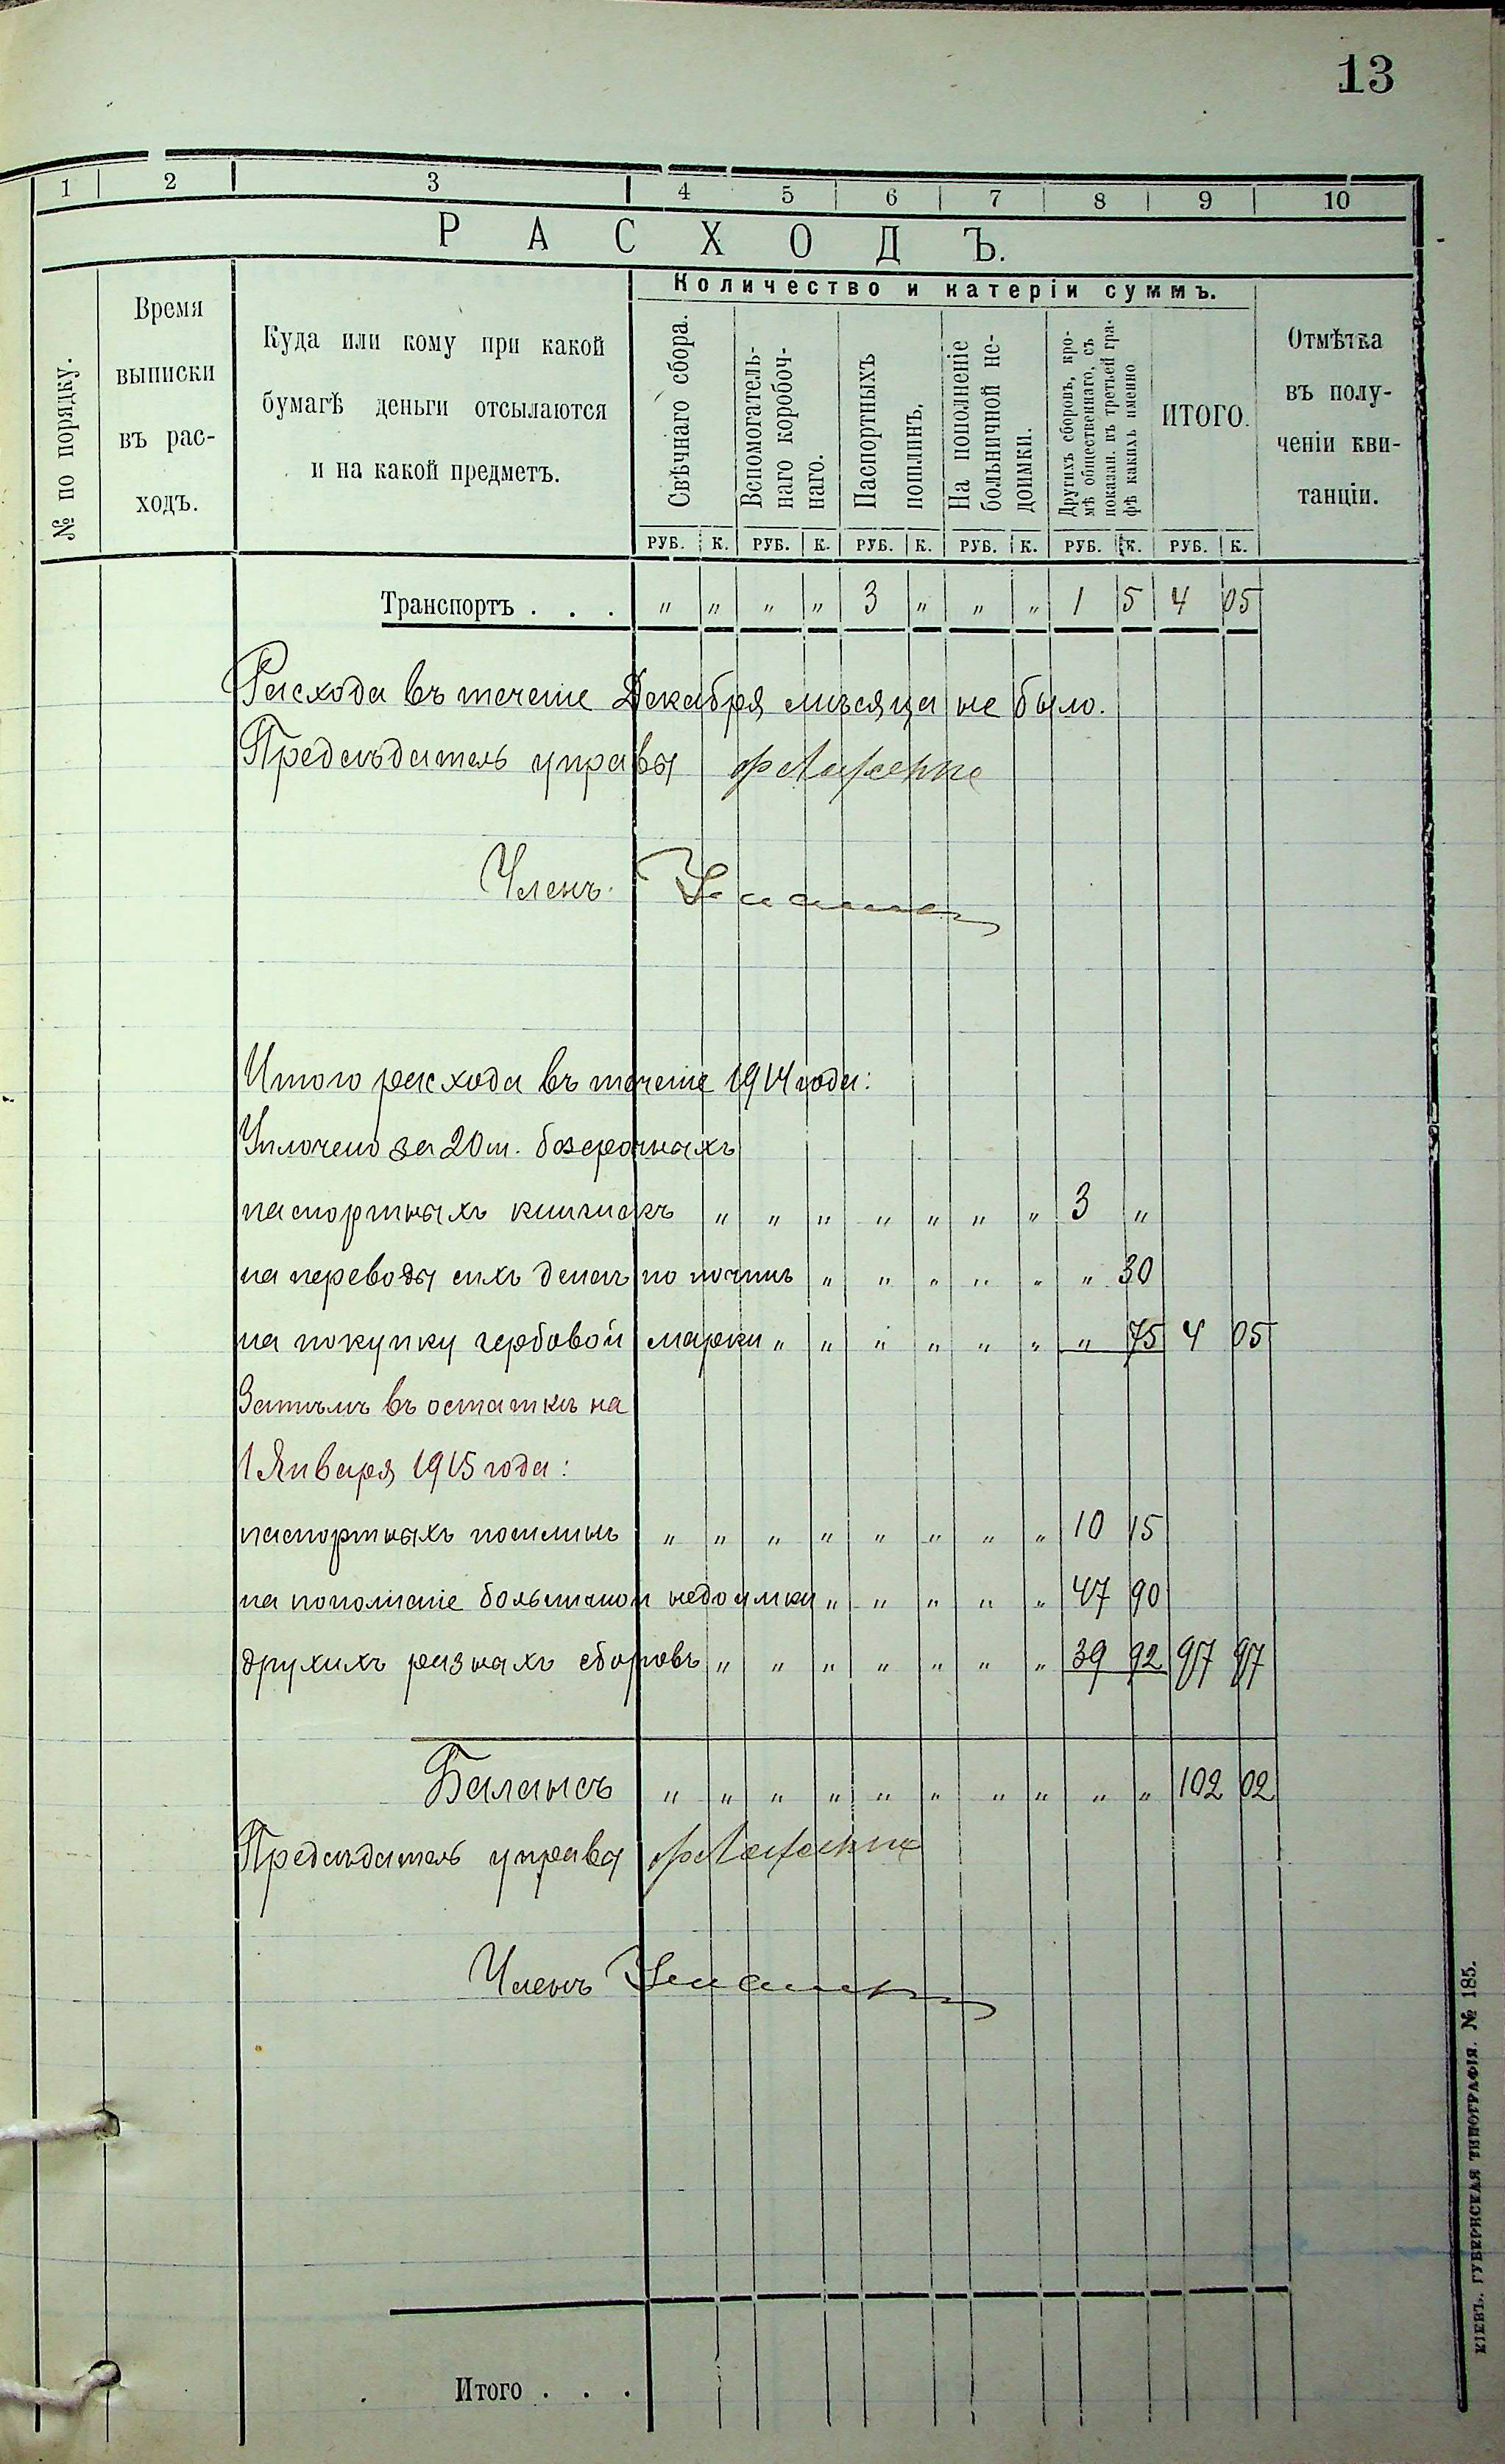 13
1 2 3 4 5 6 7 8 9 10
РАСХОДЪ.
Количество и катеріи суммъ.
№ по порядку.
Время
выписки
въ рас-
ходъ.
Куда или кому при какой
бумагѣ деньги отсылаются
и на какой предметъ.
Свѣчнаго сбора.
Вспомогатель-
наго коробоч-
наго.
Паспортныхъ
пошлинъ.
На пополненіе
больничной не-
доимки.
Другихъ сборовъ, кро-
мѣ общественнаго, съ
показан. въ третьей гра-
фѣ какихъ именно
ИТОГО.
Отмѣтка
въ полу-
ченіи кви-
танціи.
РУБ. К. РУБ. К. РУБ. К. РУБ. К. РУБ. К. РУБ. К.
Транспортъ . . . " " " " 3 " " " 1 5 4 05
Расхода въ теченіе Декабря мѣсяца не было.
Предсѣдатель управы
Членъ
Итого расхода въ теченіе 1914 года:
Уплочено за 20 ш. безсрочныхъ
паспортныхъ книжекъ " " " " " " " 3 "
на переводы сихъ денегъ по почтѣ " " " " " " 30
на покупку гербовой марки " " " " " " " 75 4 05
Затѣмъ въ остаткѣ на
1 Января 1915 года:
паспортныхъ пошлинъ " " " " " " " " 10 15
на пополненіе больничной недоимки " " " " " 47 90
другихъ разныхъ сборовъ " " " " " " " 39 92 97 97
Балансъ " " " " " " " " " " 102 02
Предсѣдатель управы
Членъ
Итого . . .
КІЕВЪ. ГУБЕРНСКАЯ ТИПОГРАФІЯ. № 185.